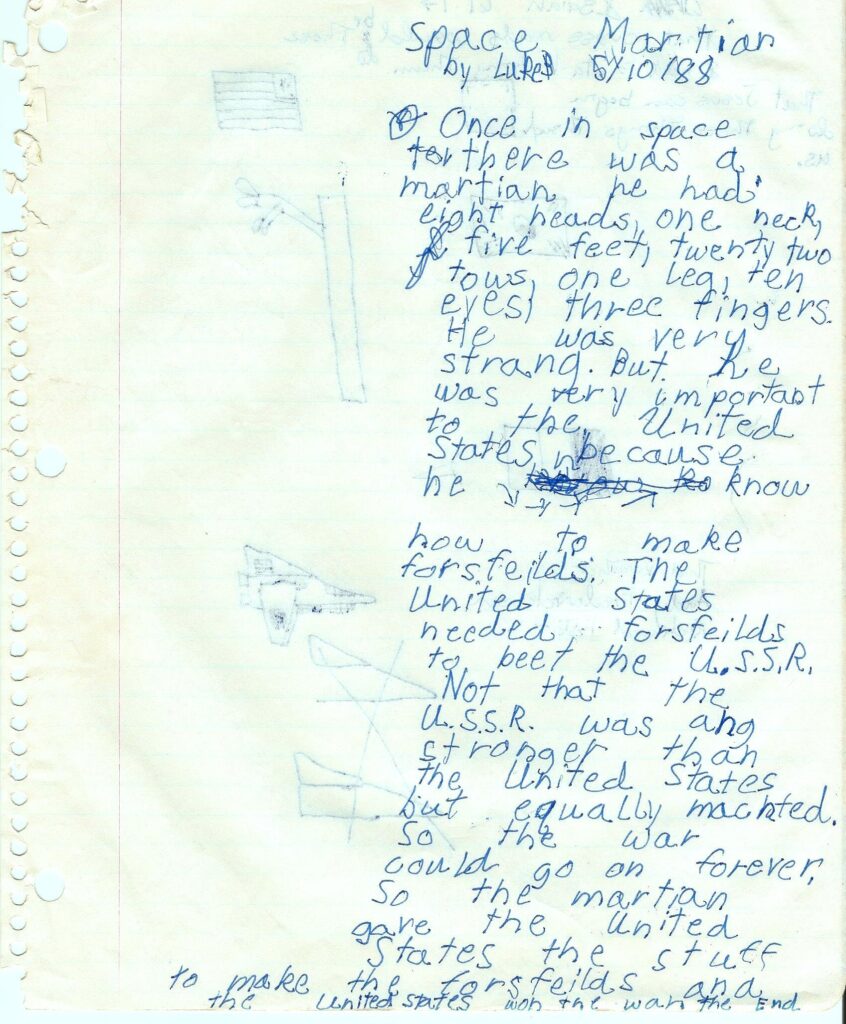 Space Martian
by Luke B 5/10/88
Once in space
there was a
martian he had
eight heads, one neck,
five feet, twenty two
tows, one leg, ten
eyes, three fingers.
He was very
strang. But he
was very important
to the United
States because
he know
how to make
forsfeilds. The
United States
needed forsfeilds
to beet the U.S.S.R.
Not that the
U.S.S.R. was ang
stronger than
the United States
but equally machted.
So the war
could go on forever,
So the martian
gave the United
States the stuff
to make the forsfeilds and
the United States won the war. the End